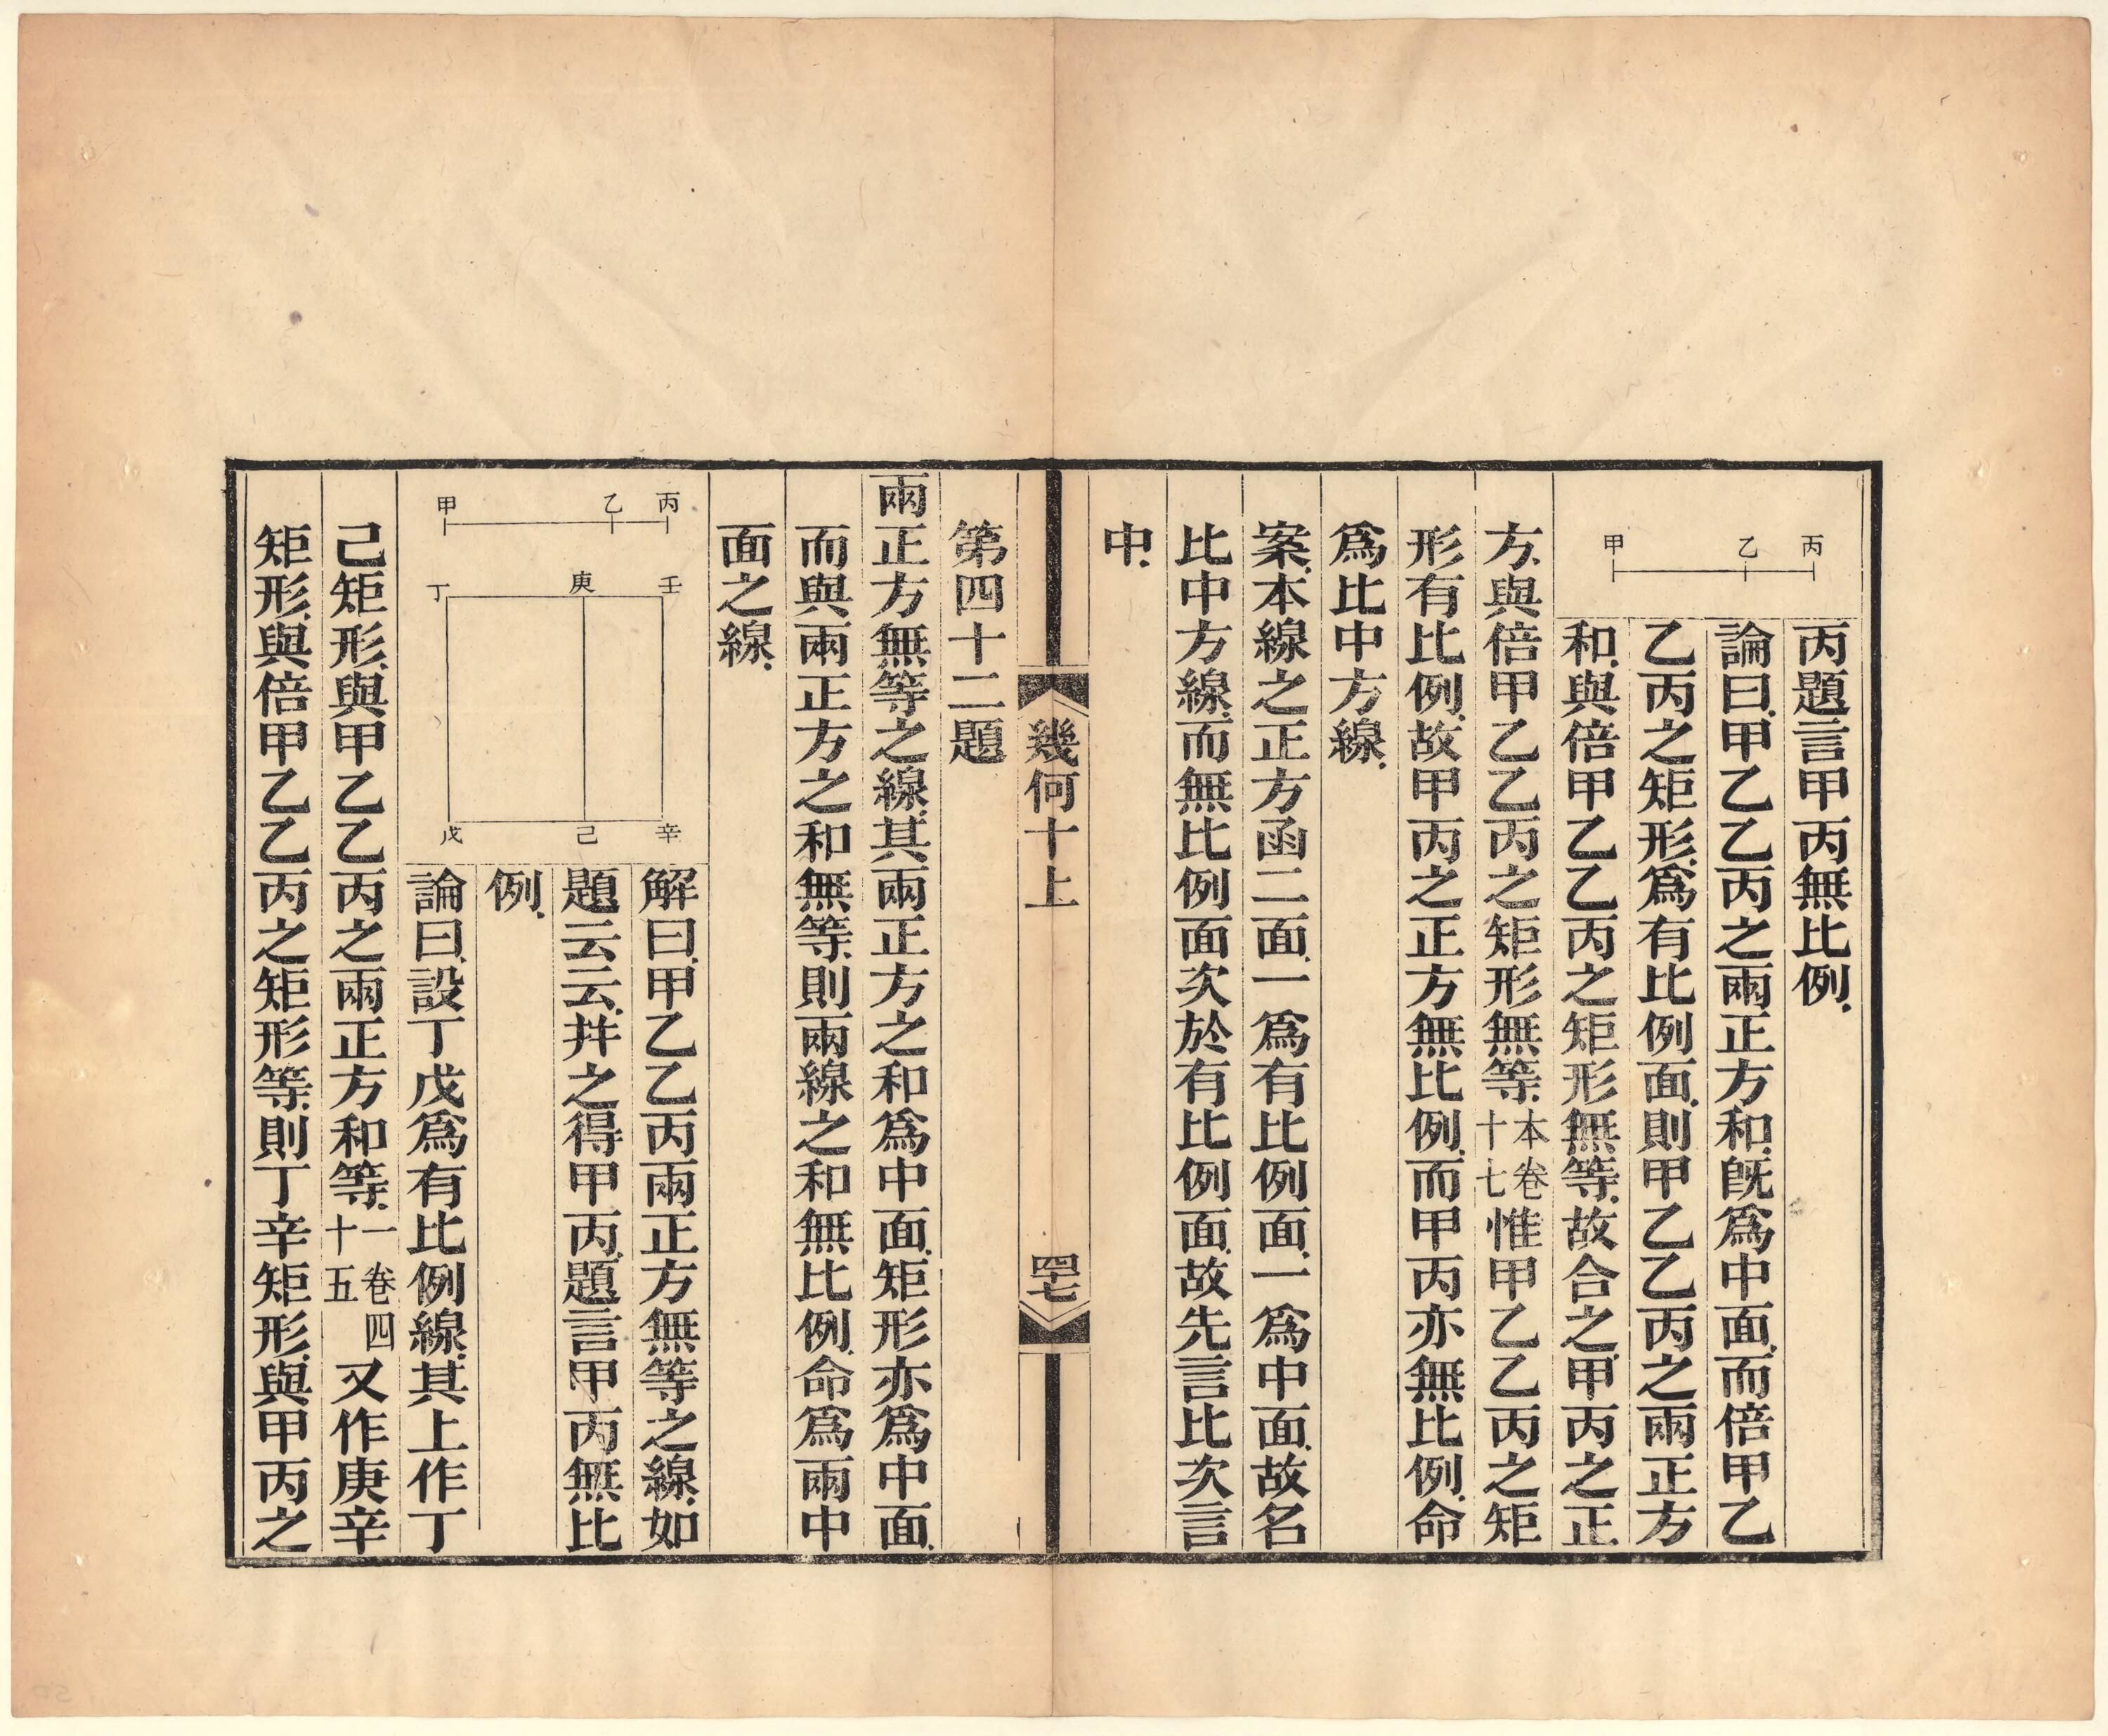 甲 乙 丙
丙題言甲丙無比例.
論曰.甲乙乙丙之兩正方和.旣爲中面.而倍甲乙
乙丙之矩形.爲有比例面.則甲乙乙丙之兩正方
和.與倍甲乙乙丙之矩形無等.故合之.甲丙之正
方.與倍甲乙乙丙之矩形無等.本卷十七惟甲乙乙丙之矩
形有比例.故甲丙之正方無比例.而甲丙亦無比例.命
爲比中方線.
案.本線之正方函二面.一爲有比例面.一爲中面.故名
比中方線.而無比例面次於有比例面.故先言比次言
中.
幾何十上
罕七
第四十二題
兩正方無等之線.其兩正方之和爲中面.矩形亦爲中面.
而與兩正方之和無等.則兩線之和無比例.命爲兩中
面之線.
甲 乙 丙
丁 庚 壬
戊 己 辛
解曰.甲乙乙丙兩正方無等之線.如
題云云.并之得甲丙.題言甲丙無比
例.
論曰.設丁戊爲有比例線.其上作丁
己矩形.與甲乙乙丙之兩正方和等.一卷四十五又作庚辛
矩形.與倍甲乙乙丙之矩形等.則丁辛矩形.與甲丙之